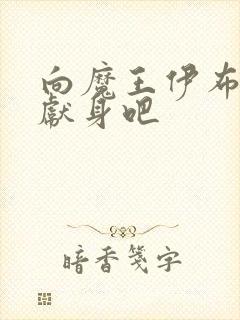 向魔王伊布
献身吧
暗香笺字